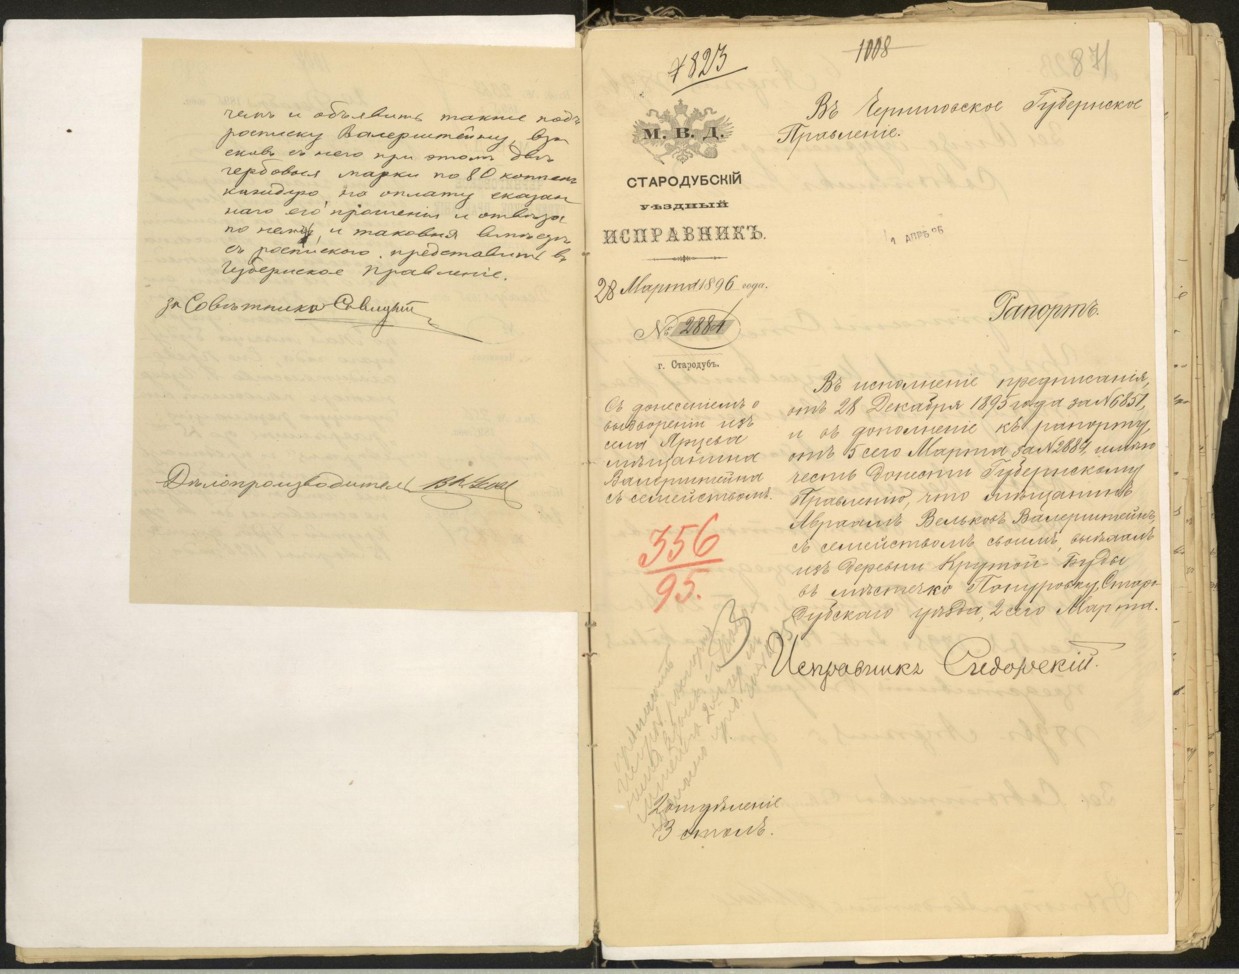 чемъ и объявить также подъ
росписку Валерштейну, взы
скавъ съ него при этомъ двѣ
гербовыя марки по 80 копѣекъ
каждую на оплату сказан
наго его прошенія и отвѣта
по нему, и таковыя вмѣстѣ
съ роспискою представить въ
Губернское Правленіе.
за Совѣтника
Дѣлопроизводитель
7823
1008
87
Въ Черниговское Губернское
Правленіе.
М. В. Д.
СТАРОДУБСКІЙ
УѢЗДНЫЙ
ИСПРАВНИКЪ.
АПР 96
28 Марта 1896 года.
№ 2881
г. Стародубъ.
Рапортъ.
Съ донесеніемъ о
выдвореніи изъ
села
мѣщанина
Валерштейна
съ семействомъ.
356
95.
Въ исполненіе предписанія,
отъ 28 Декабря 1895 года за № 6851,
и въ дополненіе къ рапорту,
отъ 5 сего Марта за № 2884, имѣю
честь донести Губернскому
Правленію, что мѣщанинъ
Авраамъ Вельковъ Валерштейнъ,
съ семействомъ своимъ, выѣхалъ
изъ деревни Крутой-Буды
въ мѣстечко Понуровку, Старо-
дубскаго уѣзда, 2 сего Марта.
Исправникъ
2 отдѣленіе
3 столъ.